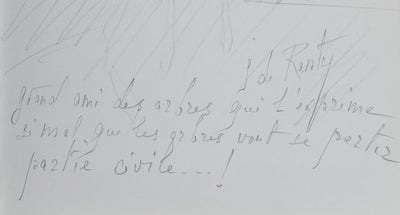 J de Renty
grand ami des arbres qui s'exprime
si mal que les arbres vont se porter
partie civile...!